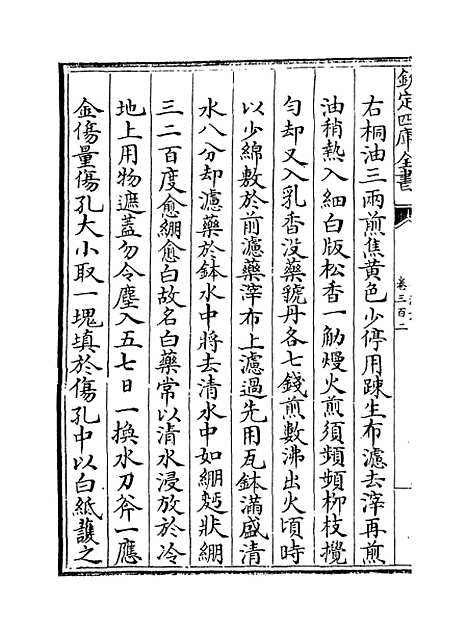 欽定四庫全書
卷三百二
右桐油三兩煎焦黄色少停用踈生布濾去滓再煎
油稍熱入細白版松香一觔熳火煎須頻頻柳枝攪
勻却又入乳香没藥虢丹各七錢煎數沸出火頃時
以少綿敷於前濾藥滓布上濾過先用瓦鉢滿盛清
水八分却濾藥於鉢水中將去清水中如綳麫狀綳
三二百度愈綳愈白故名白藥常以清水浸放於冷
地上用物遮蓋勿令塵入五七日一換水刀斧一應
金傷量傷孔大小取一塊填於傷孔中以白紙護之